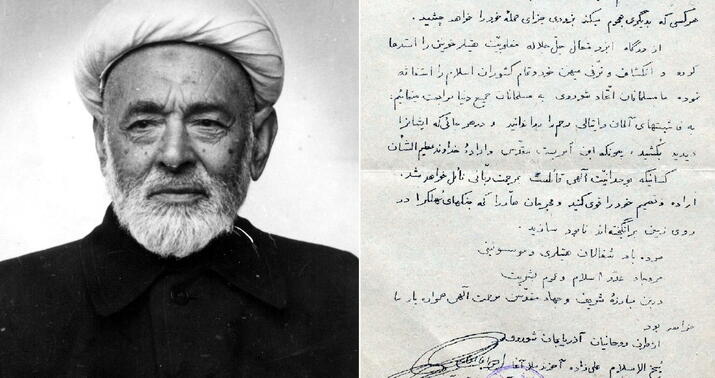 هرکسی که بدیگری هجوم میکند بزودی جزای عمل خود را خواهد چشید.
از درگاه ایزد متعال جل جلاله مغلوبیت هیتلر خونین را استدعا
کرده و انکشاف و ترقی میهن خود و تمام کشوران اسلام را استغاثه
نموده ما مسلمانان اتحاد شوروی به مسلمانان جمیع دنیا مراجعت مینمائیم:
به فاشیستهای آلمان و ایتالی رحم را روا ندانید و در هر جائی که ایشانرا
دیدید بکشید، چونکه این امریست مقدس و ارادهٔ خداوند عظیم الشان
کسانیکه بوحدانیت الهی قائلست بمرحمت ربانی نائل خواهد شد.
اراده و تصمیم خود را قوی کنید و مجرمان ما را که جنگهای مهلک را در
روی زمین برانگیخته‌اند نابود سازید.
مرده باد شغالان هیتلری و موسولینی
مرده‌باد عدو اسلام و عموم بشریت
درین مبارزهٔ شریف و جهاد مقدس مرحمت الهی همواره یار ما
خواهد بود
از طرف روحانیان آذربایجان شوروی
شیخ الاسلام علی‌زاده آخوند ملا آقا